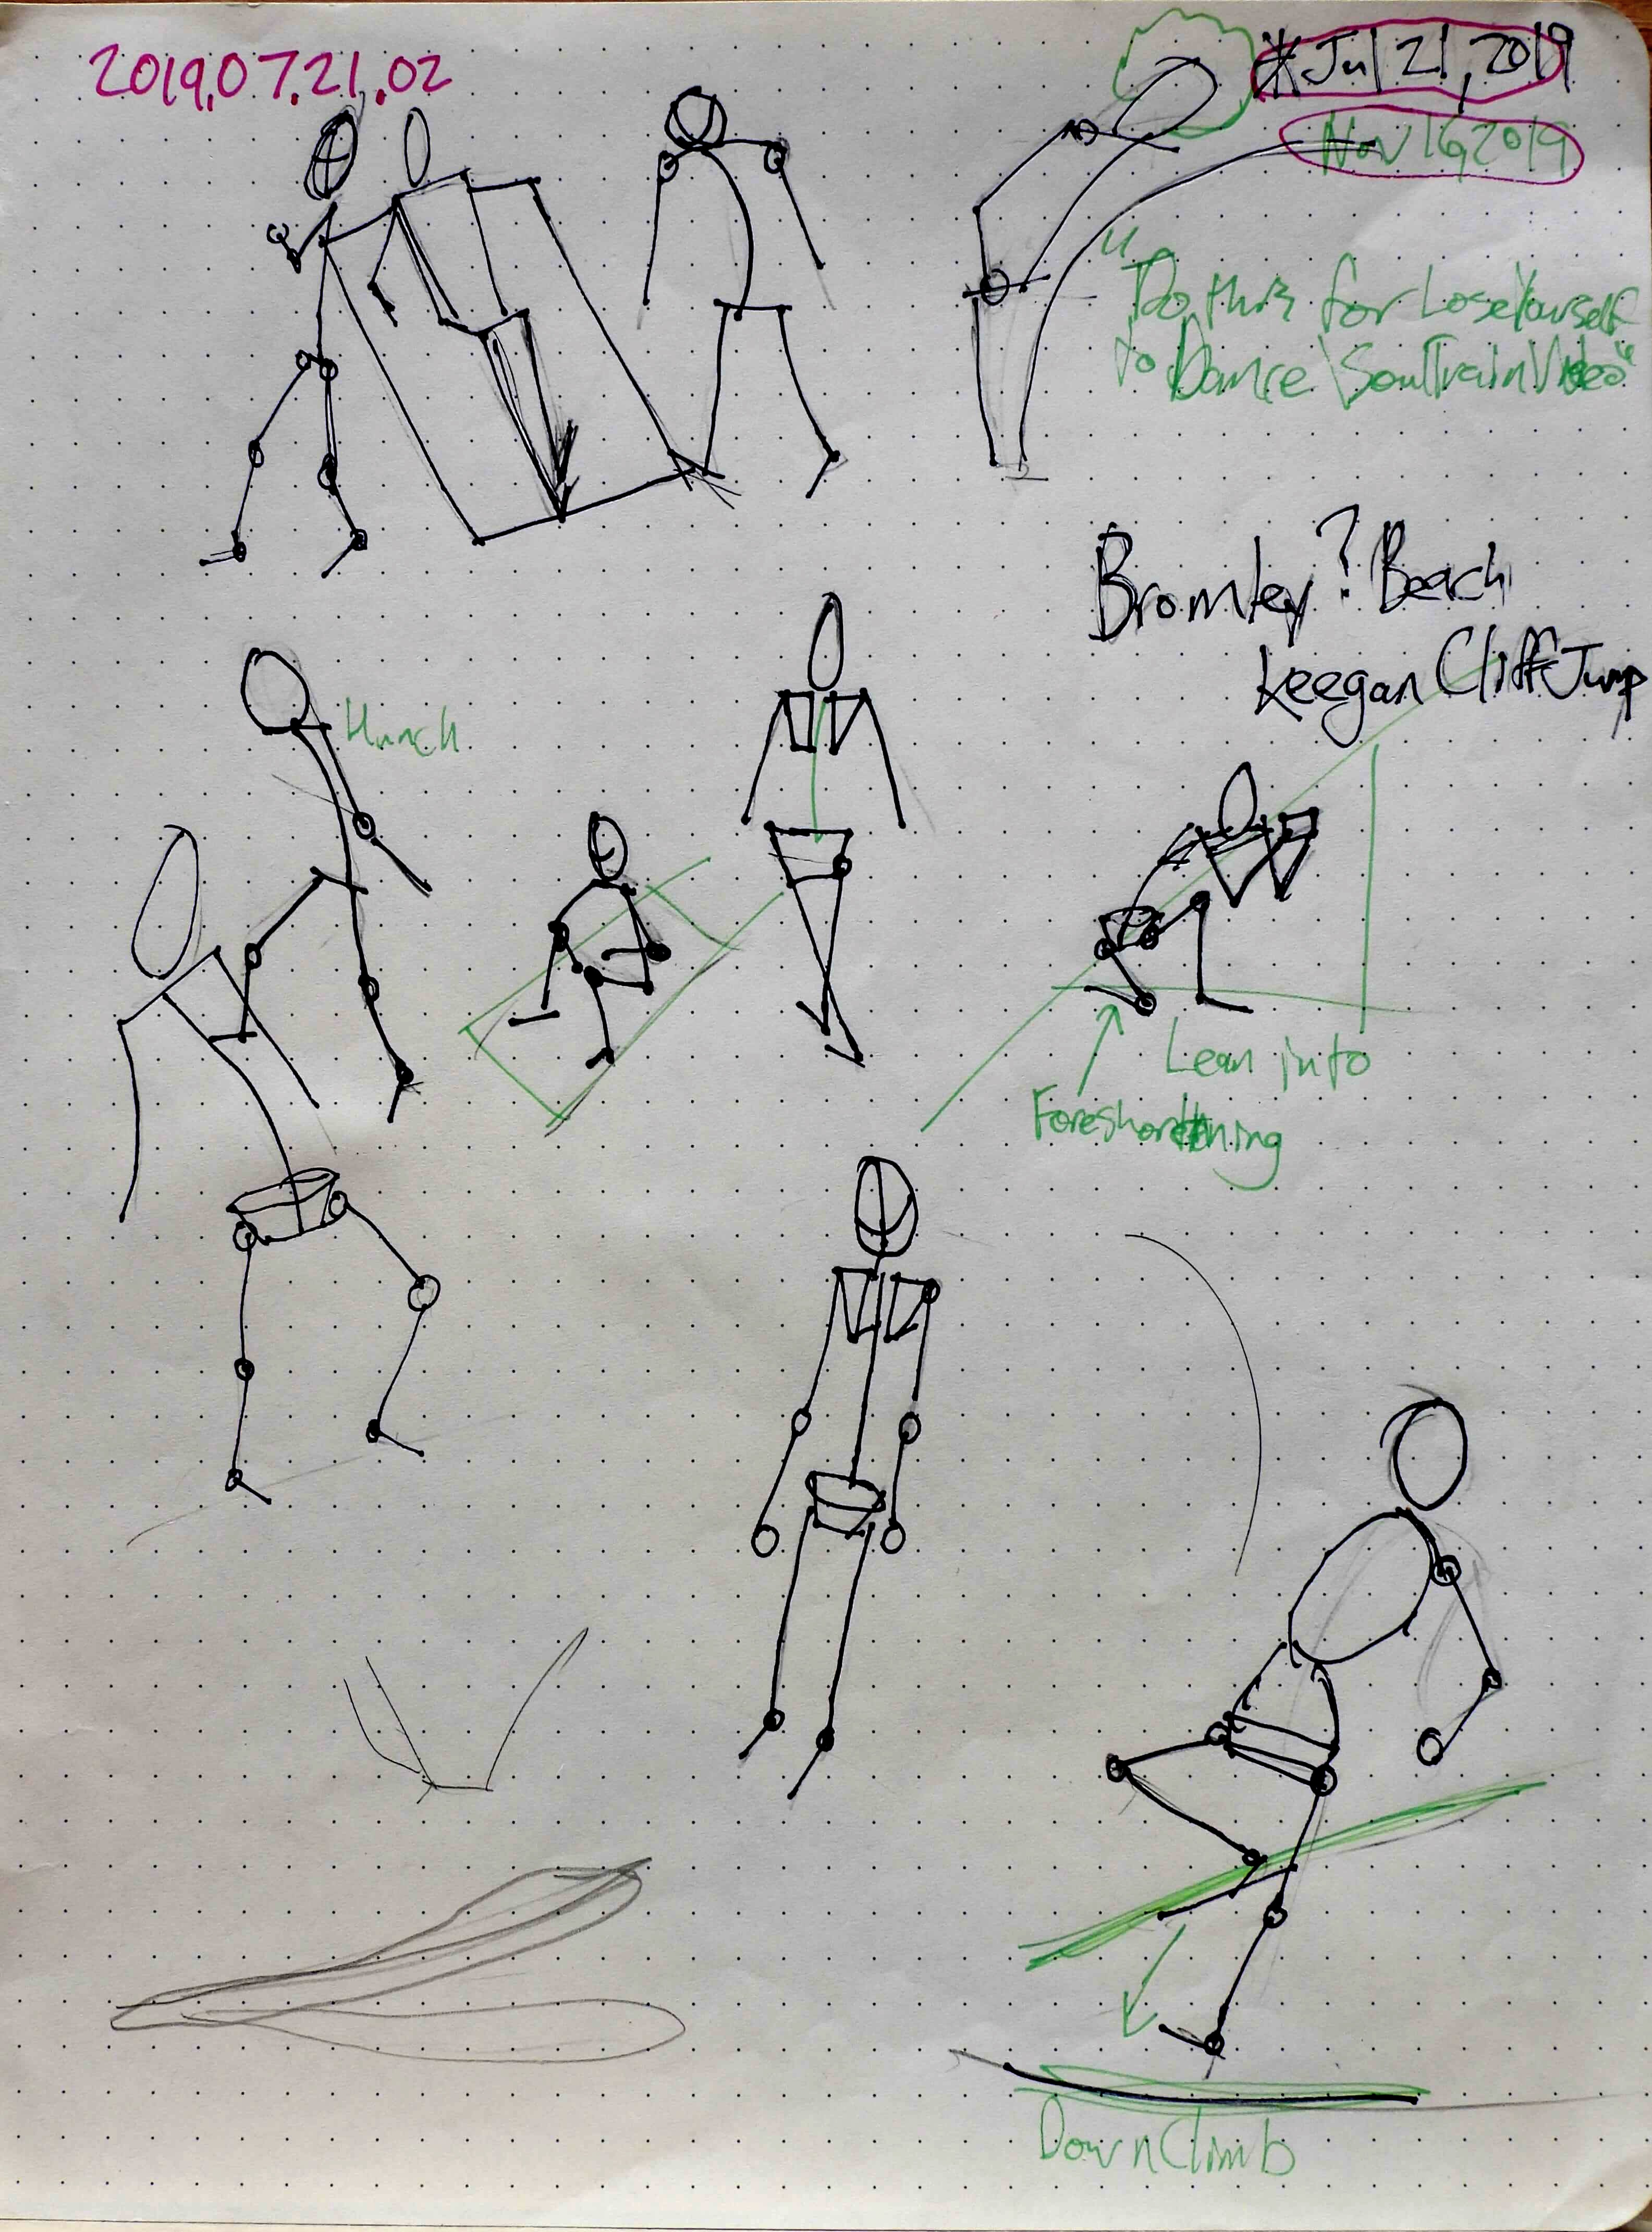 2019.07.21.02
*Jul 21, 2019
Nov 16, 2019
"Do this for Lose Yourself
to Dance \SoulTrain Video"
Bromley? Beach
Keegan Cliff Jump
Hunch
Lean into
Foreshortening
DownClimb